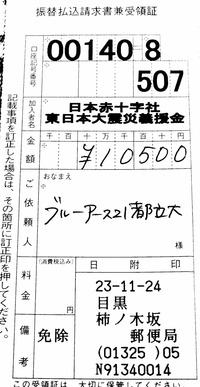 振替払込請求書兼受領証
口座記号番号
00140 8
507
加入者名
日本赤十字社
東日本大震災義援金
金額
千 百 十 万 千 百 十 円
¥10500
ご依頼人
おなまえ
ブルーアース21都立大
様
料金
(消費税込み)
円
日附印
23-11-24
目黒
柿ノ木坂
郵便局
(01325)05
N91340014
備考
免除
記載事項を訂正した場合は、その箇所に訂正印を押してください。
この受領証は、大切に保管してください。